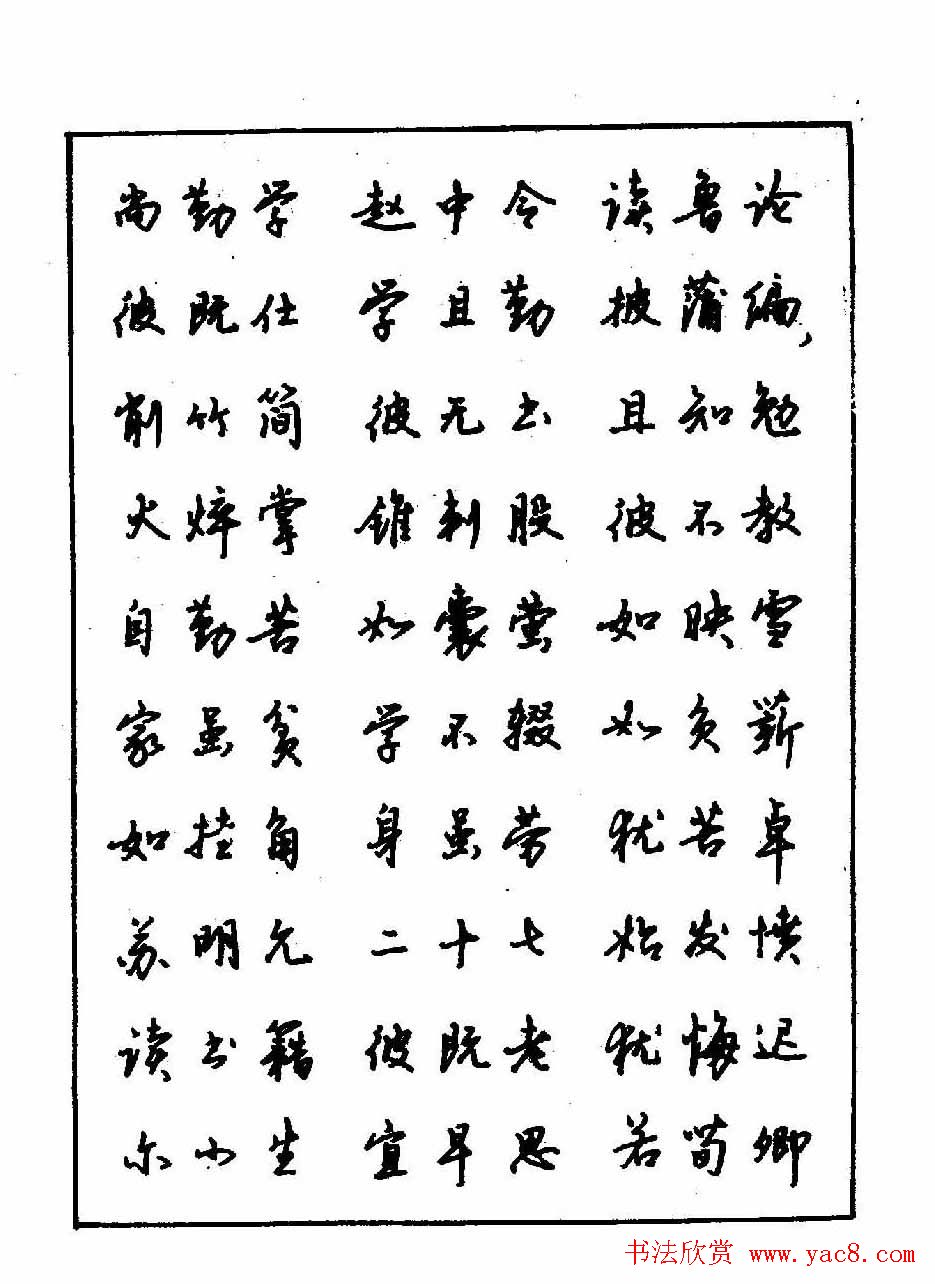 尚勤学 赵中令 读鲁论
彼既仕 学且勤 披蒲编，
削竹简 彼无书 且知勉
火焠掌 锥刺股 彼不教
自勤苦 如囊萤 如映雪
家虽贫 学不辍 如负薪
如挂角 身虽劳 犹苦卓
苏明允 二十七 始发愤
读书籍 彼既老 犹悔迟
尔小生 宜早思 若荀卿
书法欣赏 www.yac8.com